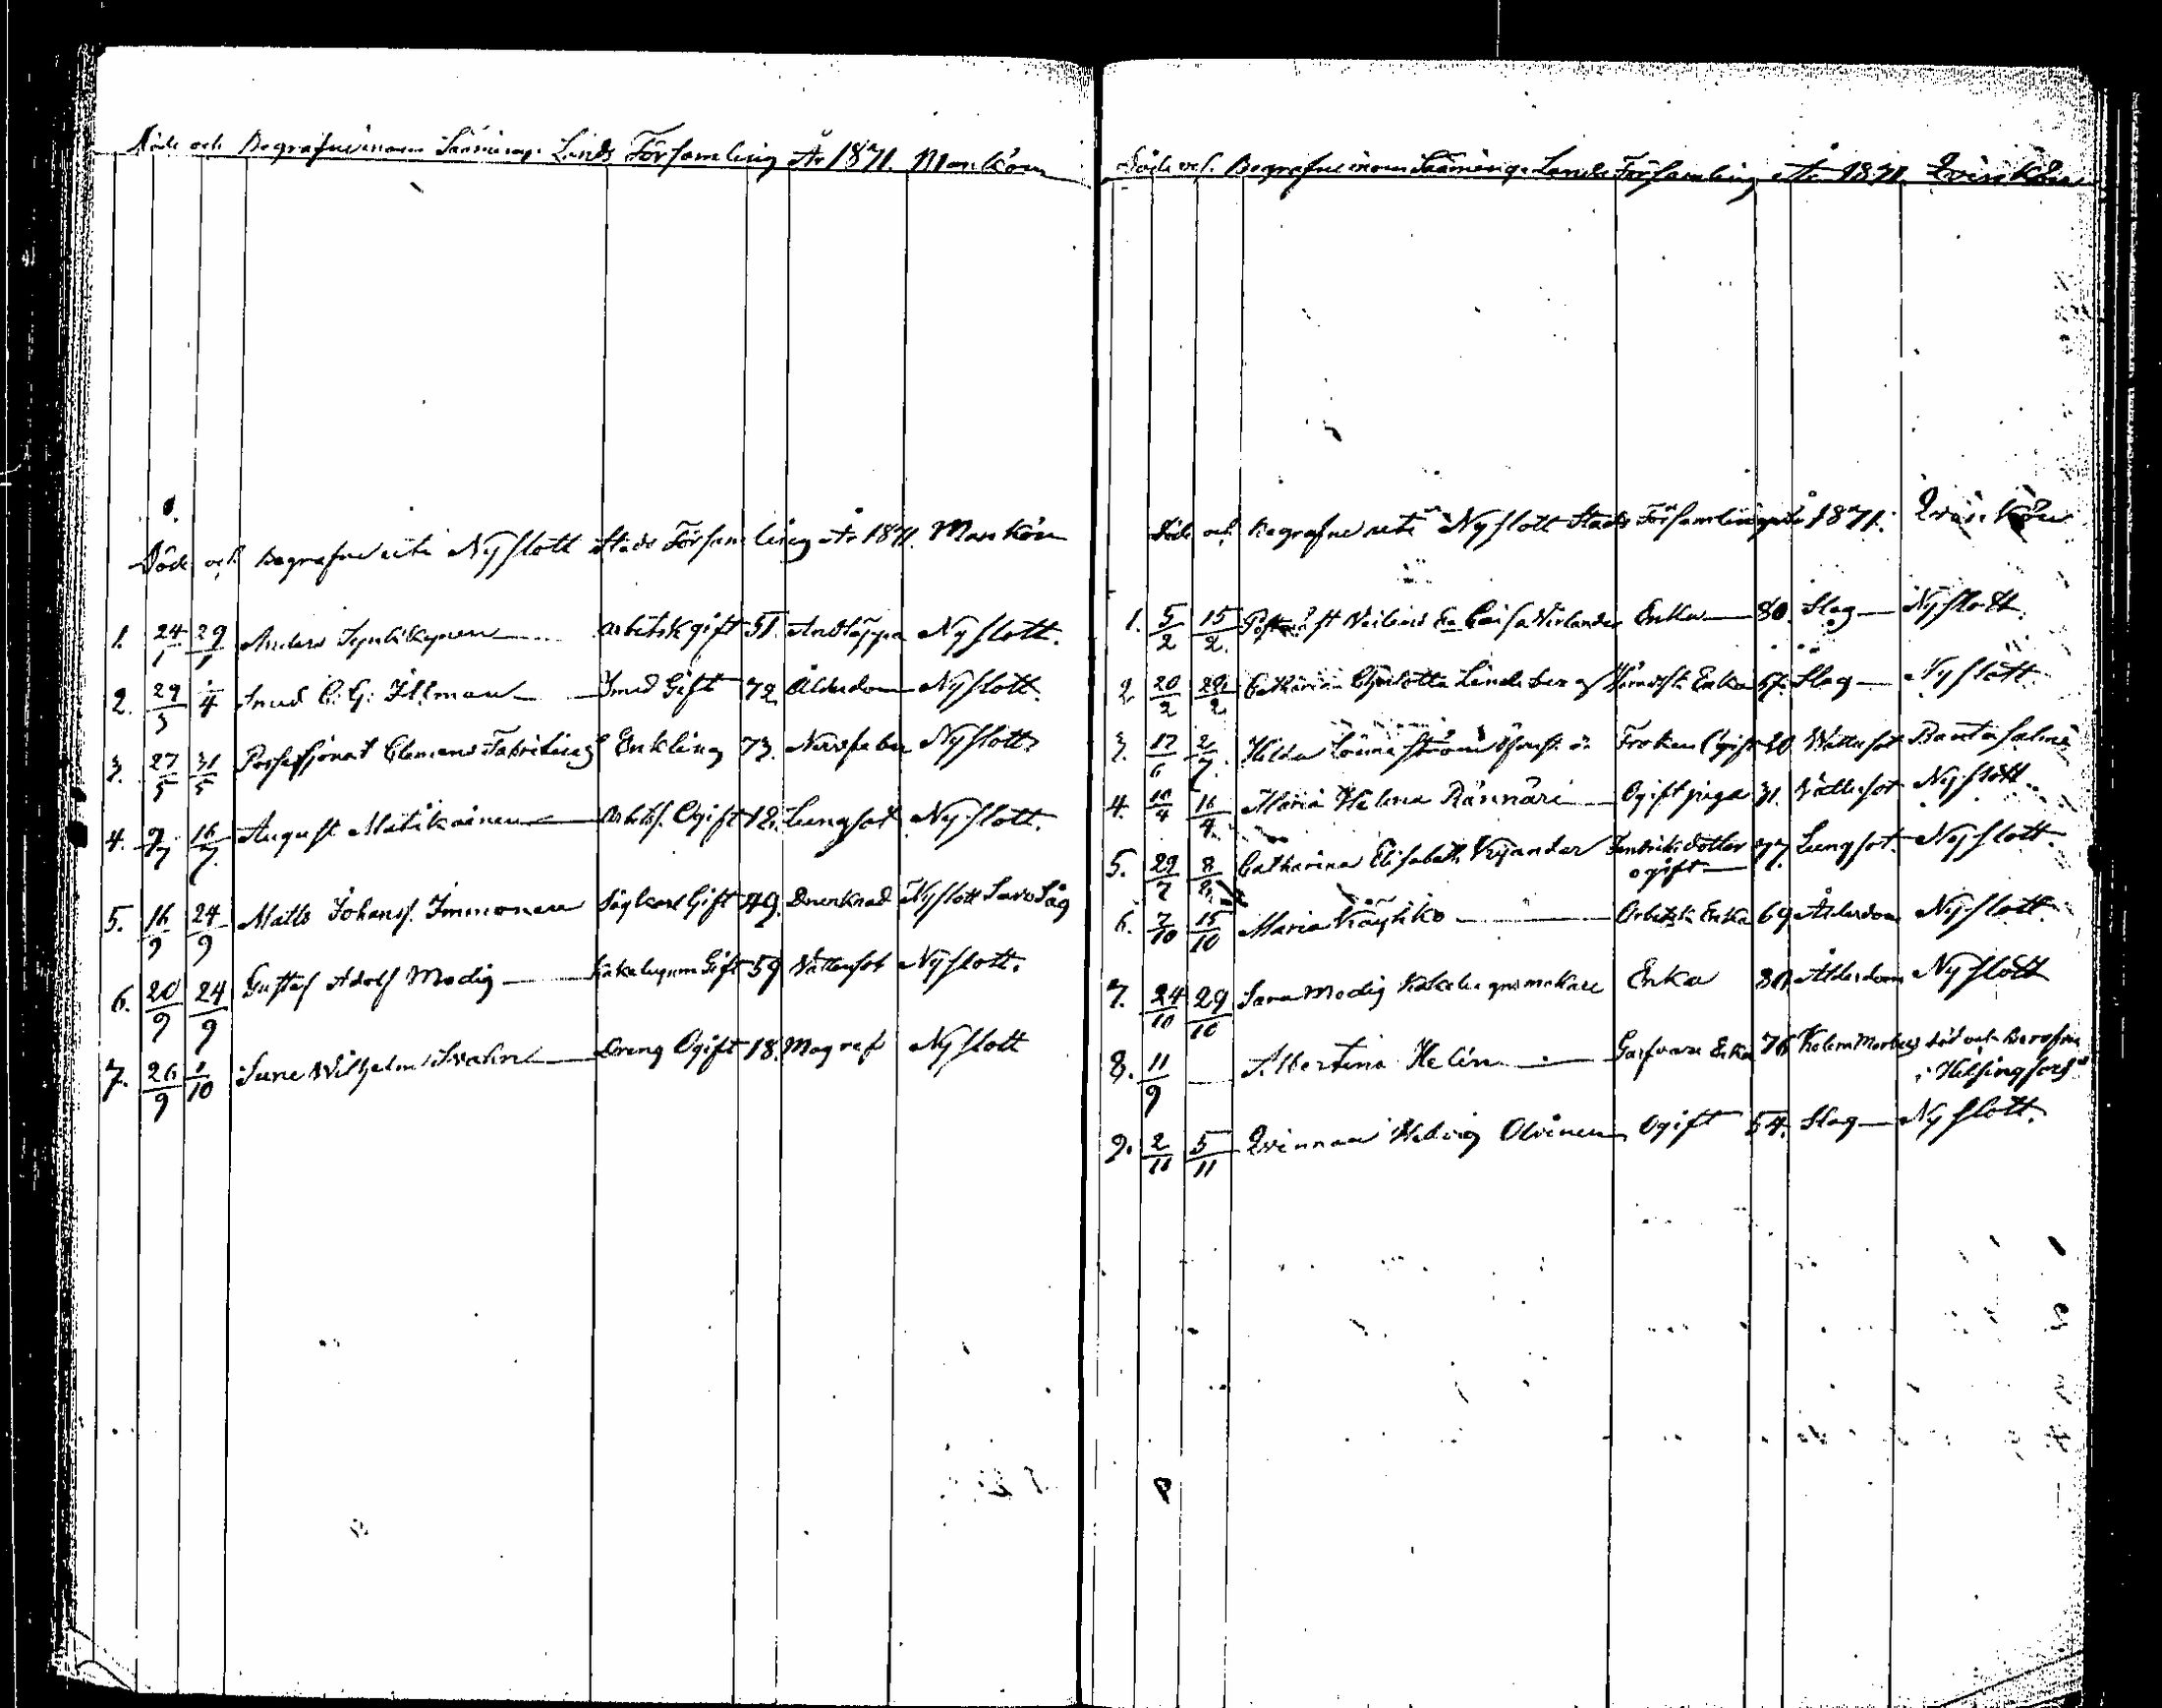 Döde och Begrafne inom Sääminge Lands Församling År 1871. Mankön
Döde och Begrafne uti Nyslott Stads Församling År 1871. Mankön
1. 24/1 29/1 Anders Arbetsk gift 51. Andtäppa Nyslott.
2. 29/3 /4 Smed C. G. Illman Smed Gift 72. Ålderdom Nyslott.
3. 27/5 31/5 Possessjonat Clemens Fabritius Enkling 73. Nervfeber Nyslott
4. 9/7 16/7 August Matikainen Arbetsk. Ogift 12. Lungsot Nyslott.
5. 16/9 24/9 Matts Johans. Immonen Sågkarl Gift 49. Drunknad Nyslott Savo Såg
6. 20/9 24/9 Gustaf Adolf Modig Kakelugnm Gift 59 Vattensot Nyslott.
7. 26/9 1/10 Wilhelm Dreng Ogift 18. Magref Nyslott
Döde och Begrafne inom Sääminge Lands Församling År 1871. Qvinkön
Döde och Begrafne uti Nyslott Stads Församling År 1871. Qvinkön
1. 5/2 15/2 Caisa Wirlander Enka 80. Slag Nyslott.
2. 20/2 29/2 Catharina Charlotta Lindeberg Enka 67. Slag Nyslott
3. 17/6 2/7 Hilda Lönnström Fröken Ogift 20. Wattusot Rantasalmi
4. 10/4 16/4 Maria Helena Rännäri Ogift piga 31. Vattusot Nyslott
5. 29/7 8/8 Catharina Elisabeth Fendriks dotter 77. Lungsot. Nyslott.
ogift
6. 7/10 15/10 Maria Käyhkö Arbetsk Enka 69 Ålderdom Nyslott.
7. 24/10 29/10 Sara Modig Kakelugnsmakare Enka 80. Ålderdom Nyslott
8. 11/9 Albertina Helin Garfvare Enka 76 Kolera Morbus död och Begrafven
i Helsingfors
9. 2/11 5/11 Qvinnan Hedvig Olvinen Ogift 54. Slag Nyslott.